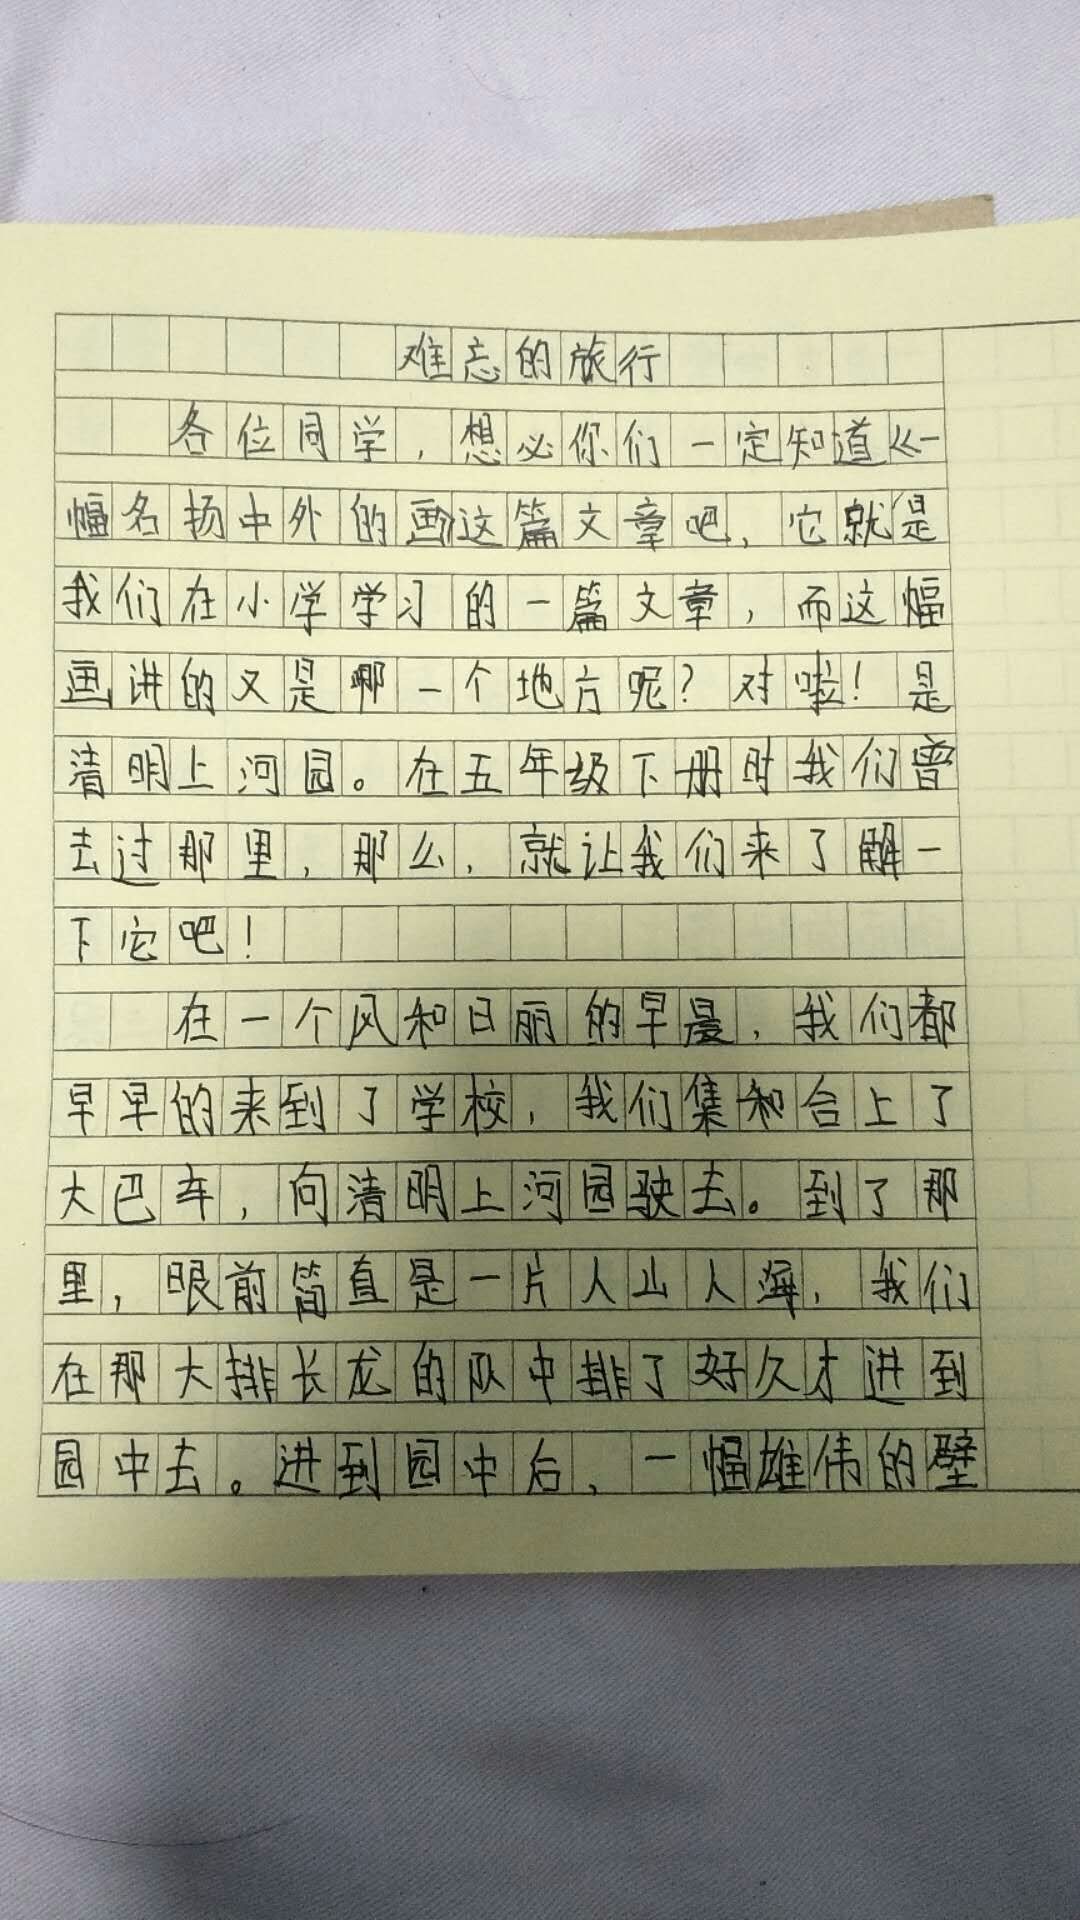 难忘的旅行
各位同学，想必你们一定知道《一
幅名扬中外的画》这篇文章吧，它就是
我们在小学学习的一篇文章，而这幅
画讲的又是哪一个地方呢？对啦！是
清明上河园。在五年级下册时我们曾
去过那里，那么，就让我们来了解一
下它吧！
在一个风和日丽的早晨，我们都
早早的来到了学校，我们集和合上了
大巴车，向清明上河园驶去。到了那
里，眼前简直是一片人山人海，我们
在那大排长龙的队中排了好久才进到
园中去。进到园中后，一幅雄伟的壁